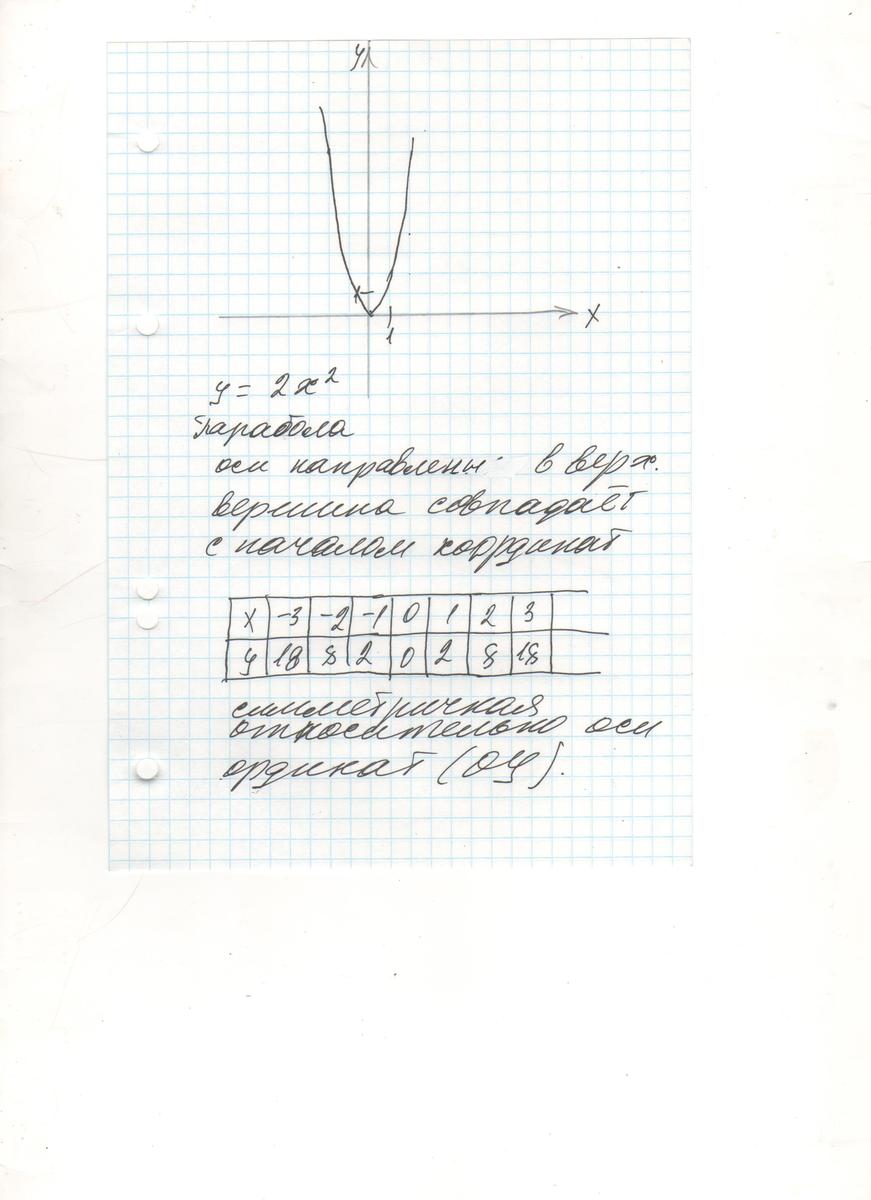 y
1
x
1
y = 2x²
Парабола
оси направлены в верх.
вершина совпадает
с началом координат
x -3 -2 -1 0 1 2 3
y 18 8 2 0 2 8 18
симметричная
относительно оси
ординат (ОУ).